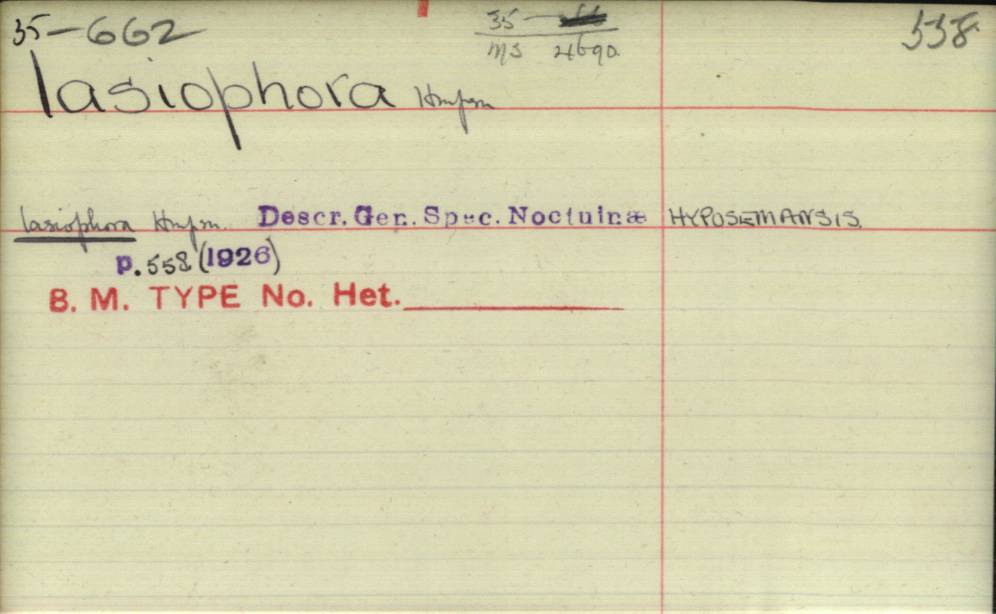 35-662
35-
MS 4690.
558
lasiophora Hmpsn
lasiophora Hmpsn. Descr. Gen. Spec. Noctuinæ HYPOSEMANSIS.
p. 558 (1926)
B. M. TYPE No. Het.